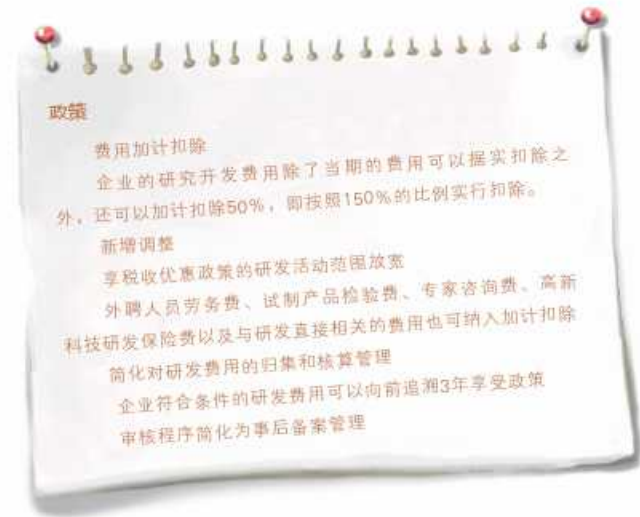 政策
费用加计扣除
企业的研究开发费用除了当期的费用可以据实扣除之
外，还可以加计扣除50%，即按照150%的比例实行扣除。
新增调整
享税收优惠政策的研发活动范围放宽
外聘人员劳务费、试制产品检验费、专家咨询费、高新
科技研发保险费以及与研发直接相关的费用也可纳入加计扣除
简化对研发费用的归集和核算管理
企业符合条件的研发费用可以向前追溯3年享受政策
审核程序简化为事后备案管理